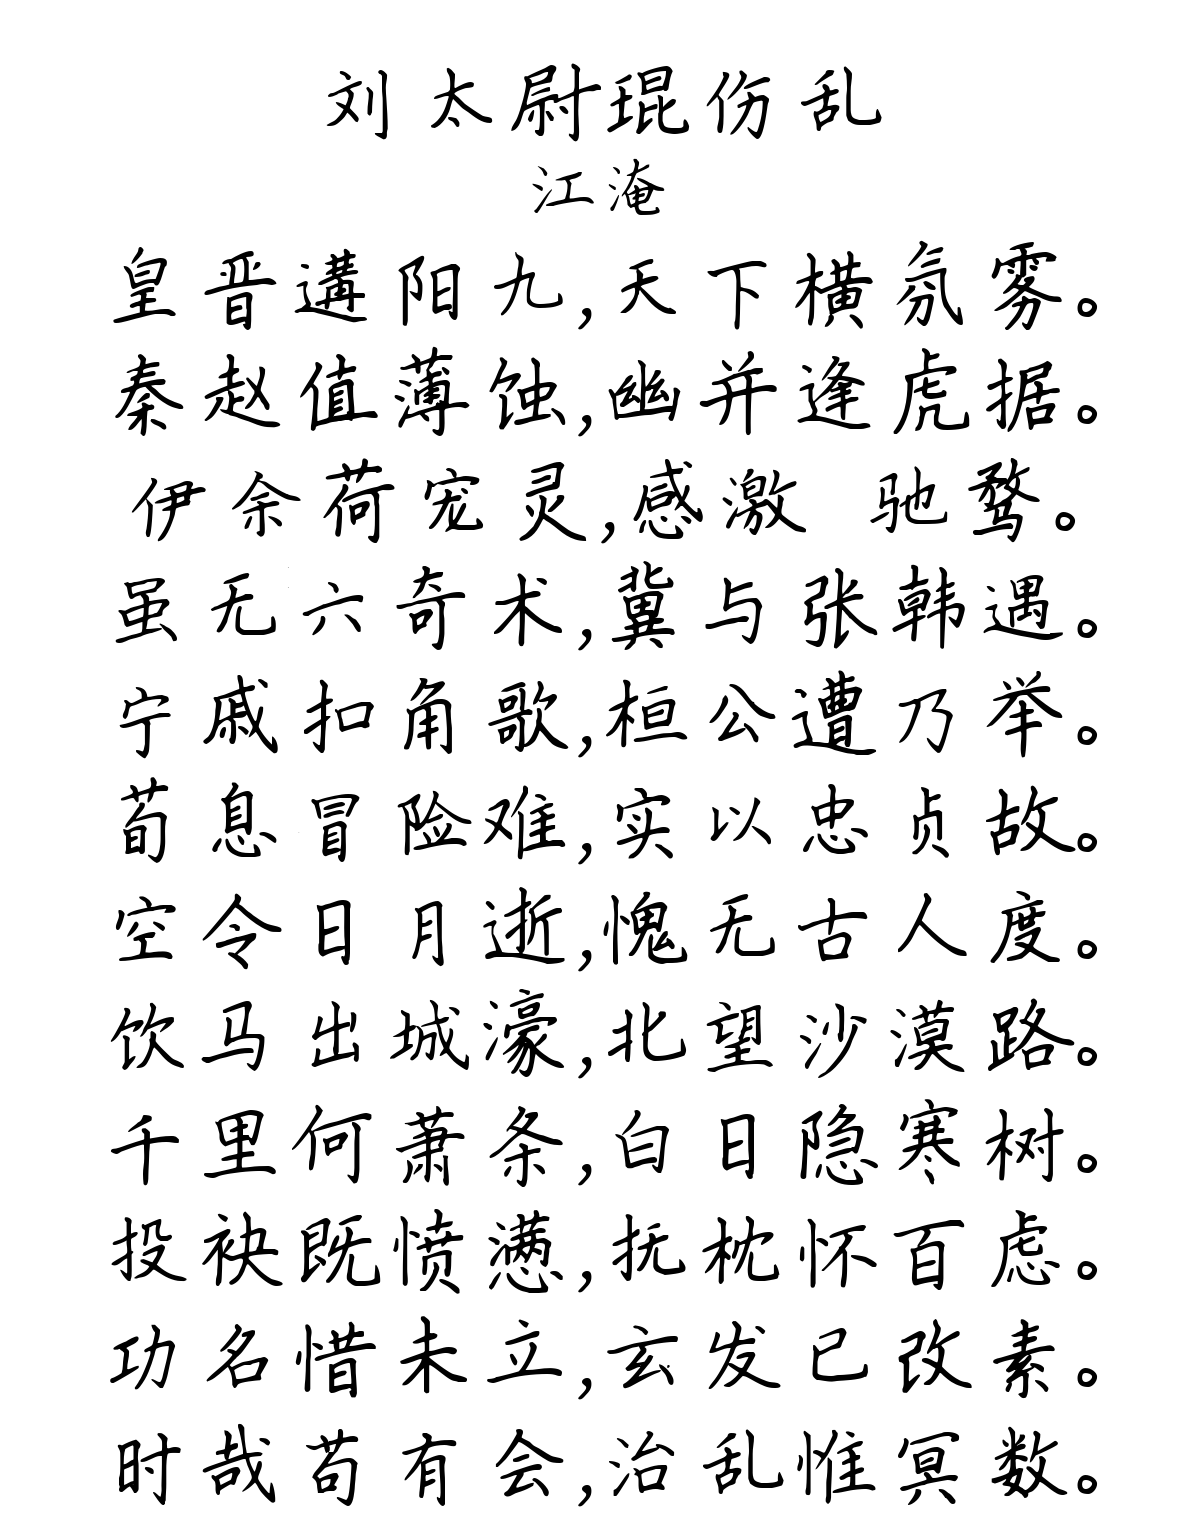 刘太尉琨伤乱
江淹
皇晋遘阳九,天下横氛雾。
秦赵值薄蚀,幽并逢虎据。
伊余荷宠灵,感激 驰骛。
虽无六奇术,冀与张韩遇。
宁戚扣角歌,桓公遭乃举。
荀息冒险难,实以忠贞故。
空令日月逝,愧无古人度。
饮马出城濠,北望沙漠路。
千里何萧条,白日隐寒树。
投袂既愤懑,抚枕怀百虑。
功名惜未立,玄发已改素。
时哉苟有会,治乱惟冥数。